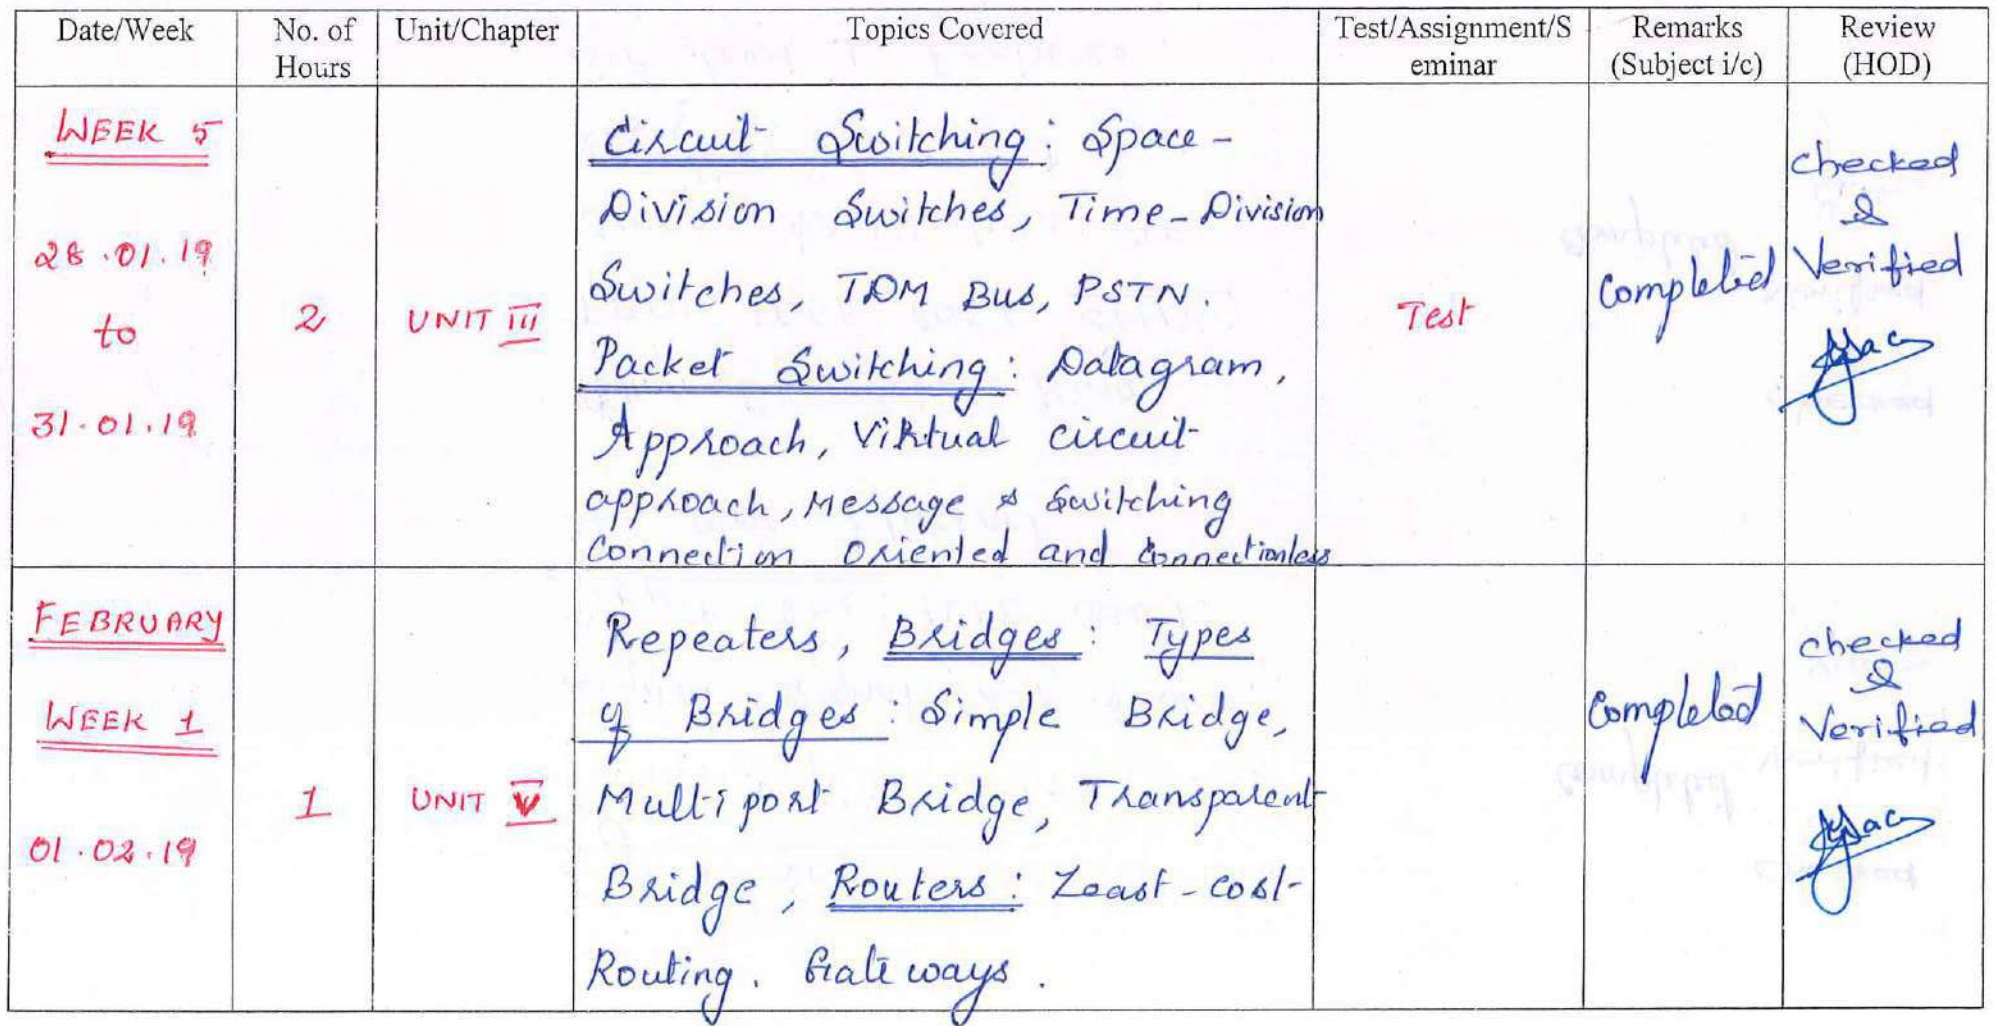 Date/Week No. of Hours Unit/Chapter Topics Covered Test/Assignment/Seminar Remarks (Subject i/c) Review (HOD)
WEEK 5
28.01.19
to
31.01.19
2
UNIT III
Circuit Switching: Space-
Division Switches, Time-Division
Switches, TDM Bus, PSTN.
Packet Switching: Datagram,
Approach, Virtual circuit
approach, Message & Switching
Connection Oriented and Connectionless
Test
Completed
checked
&
Verified
FEBRUARY
WEEK 1
01.02.19
1
UNIT V
Repeaters, Bridges: Types
of Bridges: Simple Bridge,
Multiport Bridge, Transparent
Bridge, Routers: Least-cost-
Routing. Gateways.
Completed
checked
&
Verified